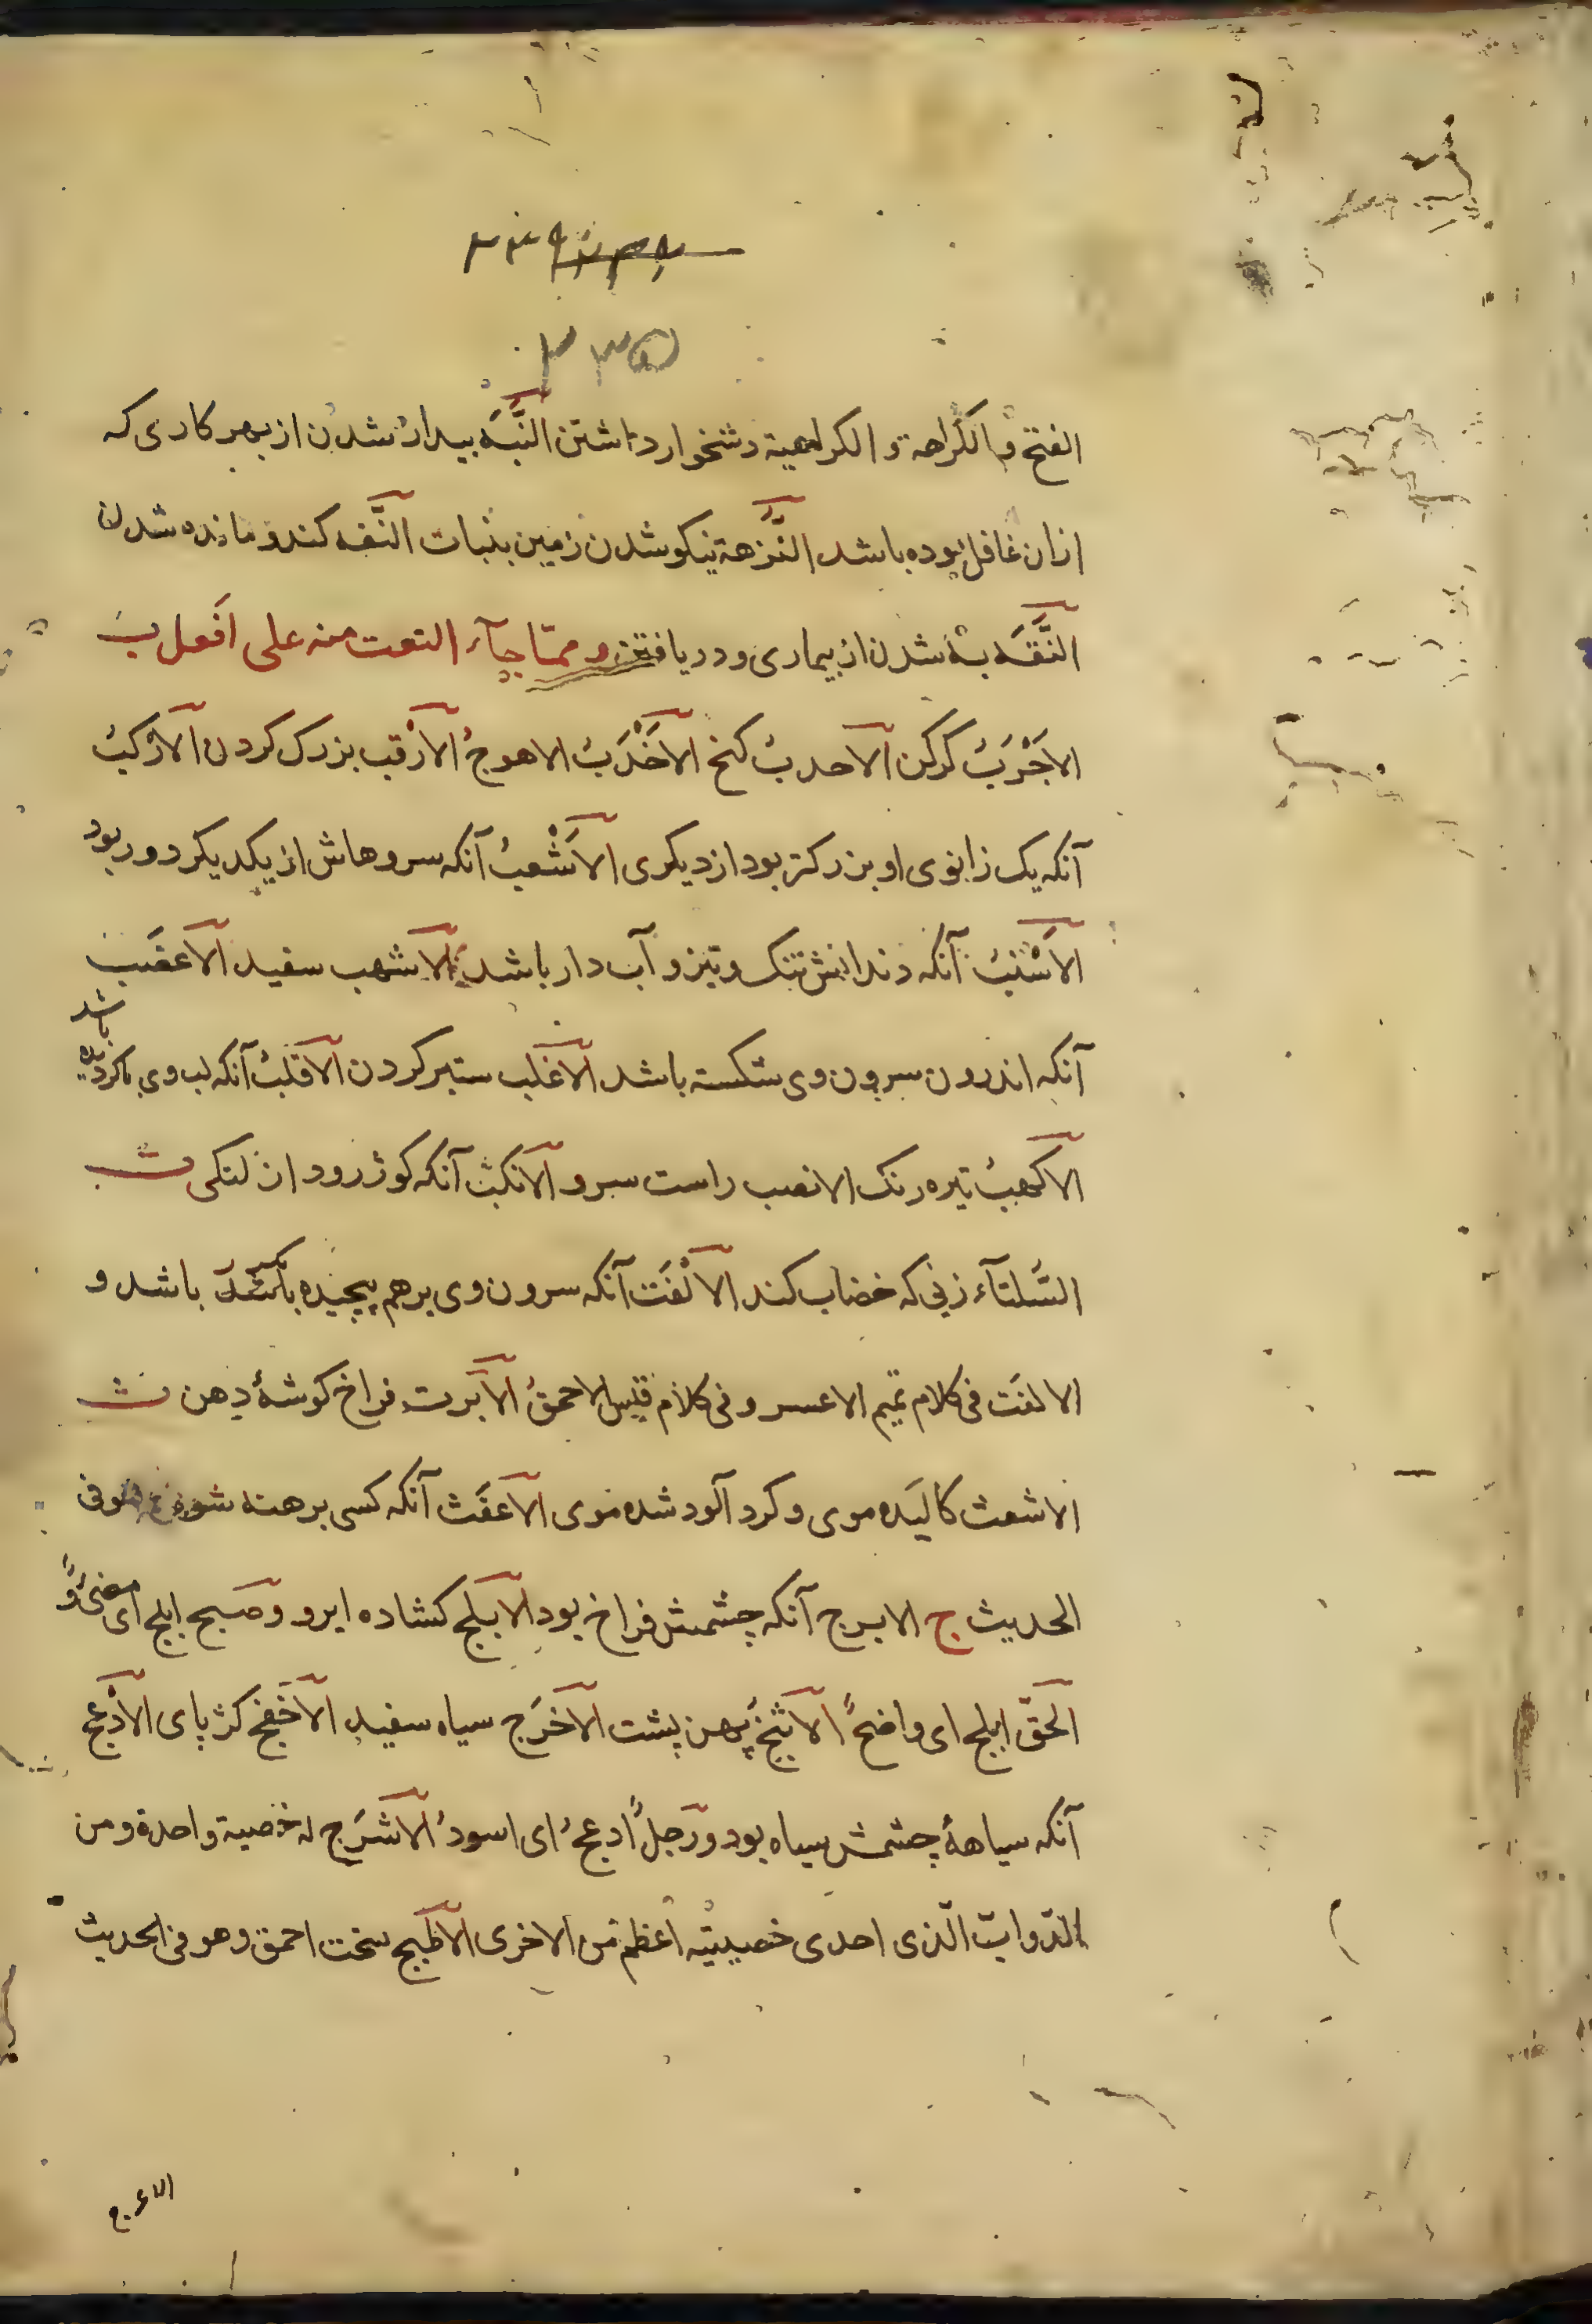 الفتح و الكَراهة و الكراهية دشخوار داشتن النَّبَه بيدار شدن از بهر كارى كه
ازان غافل بوده باشد النَّزهة نيكو شدن زمين بنبات النَّفه كند و مانده شدن
النَّقَه به شدن از بيمارى و دريافتن و ممّا جآء النعت منه على افَعل ب
الاَجْرَبُ كركن الاحدبُ كنخ الاَخْدَبُ الاهوجُ الاَرْقب بزرك كردن الاَرْكبُ
آنكه يك زانوى او بزركتر بود از ديكرى الاَشْعبُ آنكه سروهاش از يكديكر دور بود
الاَشْنبُ آنكه دندانش تنك و تيز و آب دار باشد الاشهب سفيد الاعضَب
آنكه اندرون سرون وى شكسته باشد الاغلب ستبر كردن الاقلبُ آنكه لب وى باكرديده باشد
الاكهبُ تيره رنك الانصب راست سرو الانكبُ آنكه كوژ رود از لنكى ت
السَّلتآء زنى كه خضاب كند الاَلْفَت آنكه سرون وى برهم پيچيده باشد و
الالفَت فى كلام تميم الاعسر و فى كلام قيس الاحمقُ الاَبَرت فراخ كوشهٔ دهن ث
الاشعث كاليده موى و كرد آلود شده موى الاعفَث آنكه كسى برهنه شود فى
الحديث ج الابرج آنكه چشمش فراخ بود الابلج كشاده ابرو و صبح ابلج اى مضىءٌ و
الحقّ ابلج اى واضحٌ الاثبجُ پهن پشت الاَخرَج سياه سفيد الاَخفج كژ پاى الاَدْعج
آنكه سياههٔ چشمش سياه بود و رَجلٌ ادعجُ اى اسودُ الاشرَج له خصية واحدة و من
الدّوابّ الّذى احدى خصييتيه اعظم من الاخرى الاَطبج سخت احمق و هو فى الحديث
الاعرج